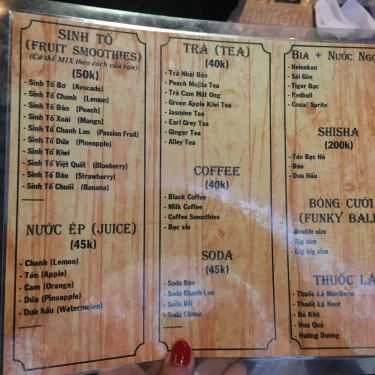 SINH TỐ
(FRUIT SMOOTHIES)
(Có thể MIX theo cách của bạn)
(50k)
- Sinh Tố Bơ (Avocado)
- Sinh Tố Chanh (Lemon)
- Sinh Tố Đào (Peach)
- Sinh Tố Xoài (Mango)
- Sinh Tố Chanh Leo (Passion Fruit)
- Sinh Tố Dứa (Pineapple)
- Sinh Tố Kiwi
- Sinh Tố Việt Quất (Blueberry)
- Sinh Tố Dâu (Strawberry)
- Sinh Tố Chuối (Banana)
NƯỚC ÉP (JUICE)
(45k)
- Chanh (Lemon)
- Táo (Apple)
- Cam (Orange)
- Dứa (Pineapple)
- Dưa hấu (Watermelon)
TRÀ (TEA)
(40k)
- Trà Nhài Đào
- Peach Mojito Tea
- Trà Cam Mật Ong
- Green Apple Kiwi Tea
- Jasmine Tea
- Earl Grey Tea
- Ginger Tea
- Alley Tea
COFFEE
(40k)
- Black Coffee
- Milk Coffee
- Coffee Smoothies
- Bạc xỉu
SODA
(45k)
- Soda Đào
- Soda Chanh Leo
- Soda
- Soda
BIA + NƯỚC NGỌ
- Heineken
- Sài Gòn
- Tiger Bạc
- Redbull
- Coca/ Sprite
SHISHA
(200k)
- Táo Bạc Hà
- Đào
- Dưa Hấu
BÓNG CƯỜI
(FUNKY BALL
- size
- Big size
- Big big size
THUỐC LÁ
- Thuốc Lá
- Thuốc Lá
- Bò Khô
- Hoa Quả
- Hướng Dương